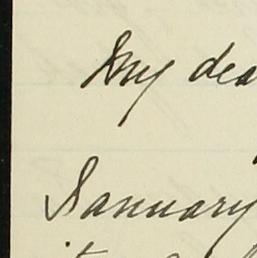 My dea
January